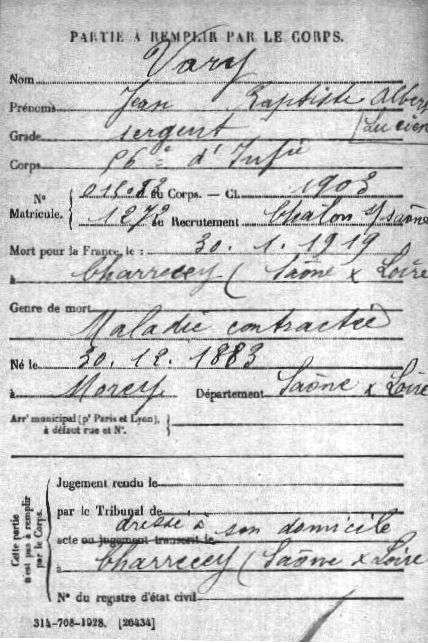 PARTIE À REMPLIR PAR LE CORPS.
Nom Vary
Prénoms Jean Baptiste Albert
Lucien
Grade sergent
Corps 56e d'Infie
N° Matricule. 01582 au Corps. — Cl. 1903
1272 au Recrutement Chalon s/saône
Mort pour la France, le : 30. 1. 1919
à Charrecey (Saône & Loire
Genre de mort
Maladie contractée
Né le 30. 12. 1883
à Morey Département Saône & Loire
Arrt municipal (pr Paris et Lyon),
à défaut rue et N°.
Cette partie
n'est pas à remplir
par le Corps.
Jugement rendu le
par le Tribunal de
dressé à son domicile
acte ou jugement transcrit le
à Charrecey (Saône & Loire
N° du registre d'état civil
314-708-1928. [26434]